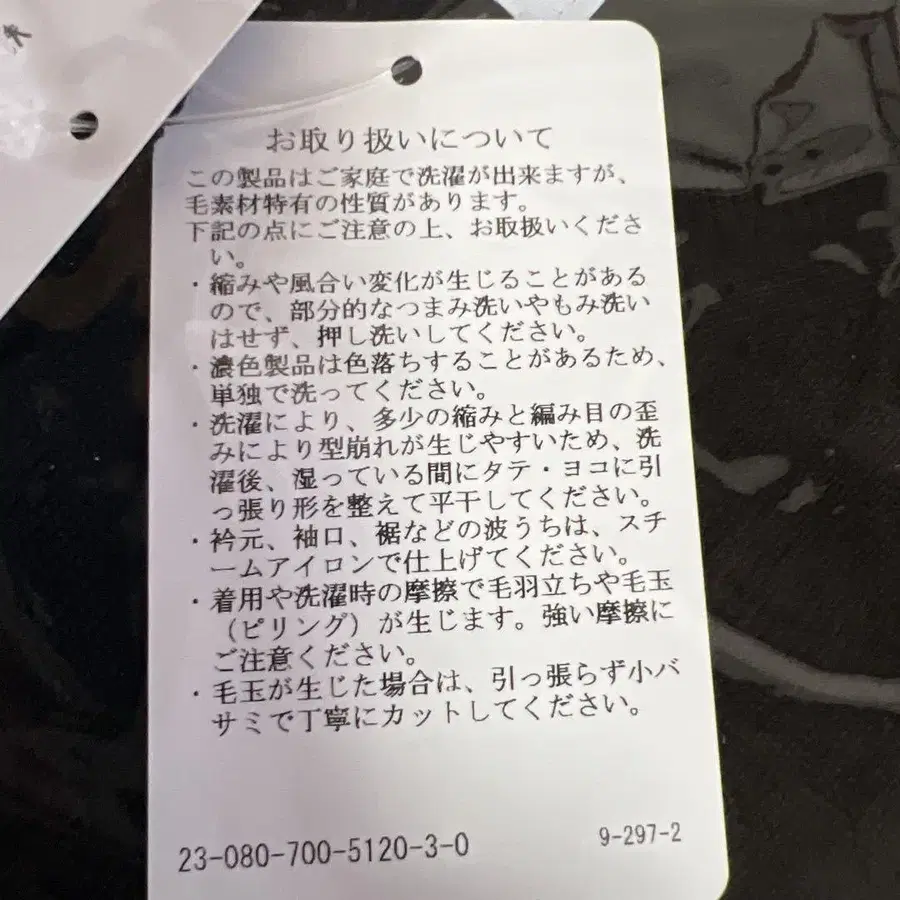 お取り扱いについて
この製品はご家庭で洗濯が出来ますが、
毛素材特有の性質があります。
下記の点にご注意の上、お取扱いくださ
い。
・縮みや風合い変化が生じることがある
ので、部分的なつまみ洗いやもみ洗い
はせず、押し洗いしてください。
・濃色製品は色落ちすることがあるため、
単独で洗ってください。
・洗濯により、多少の縮みと編み目の歪
みにより型崩れが生じやすいため、洗
濯後、湿っている間にタテ・ヨコに引
っ張り形を整えて平干してください。
・衿元、袖口、裾などの波うちは、スチ
ームアイロンで仕上げてください。
・着用や洗濯時の摩擦で毛羽立ちや毛玉
（ピリング）が生じます。強い摩擦に
ご注意ください。
・毛玉が生じた場合は、引っ張らず小バ
サミで丁寧にカットしてください。
23-080-700-5120-3-0
9-297-2